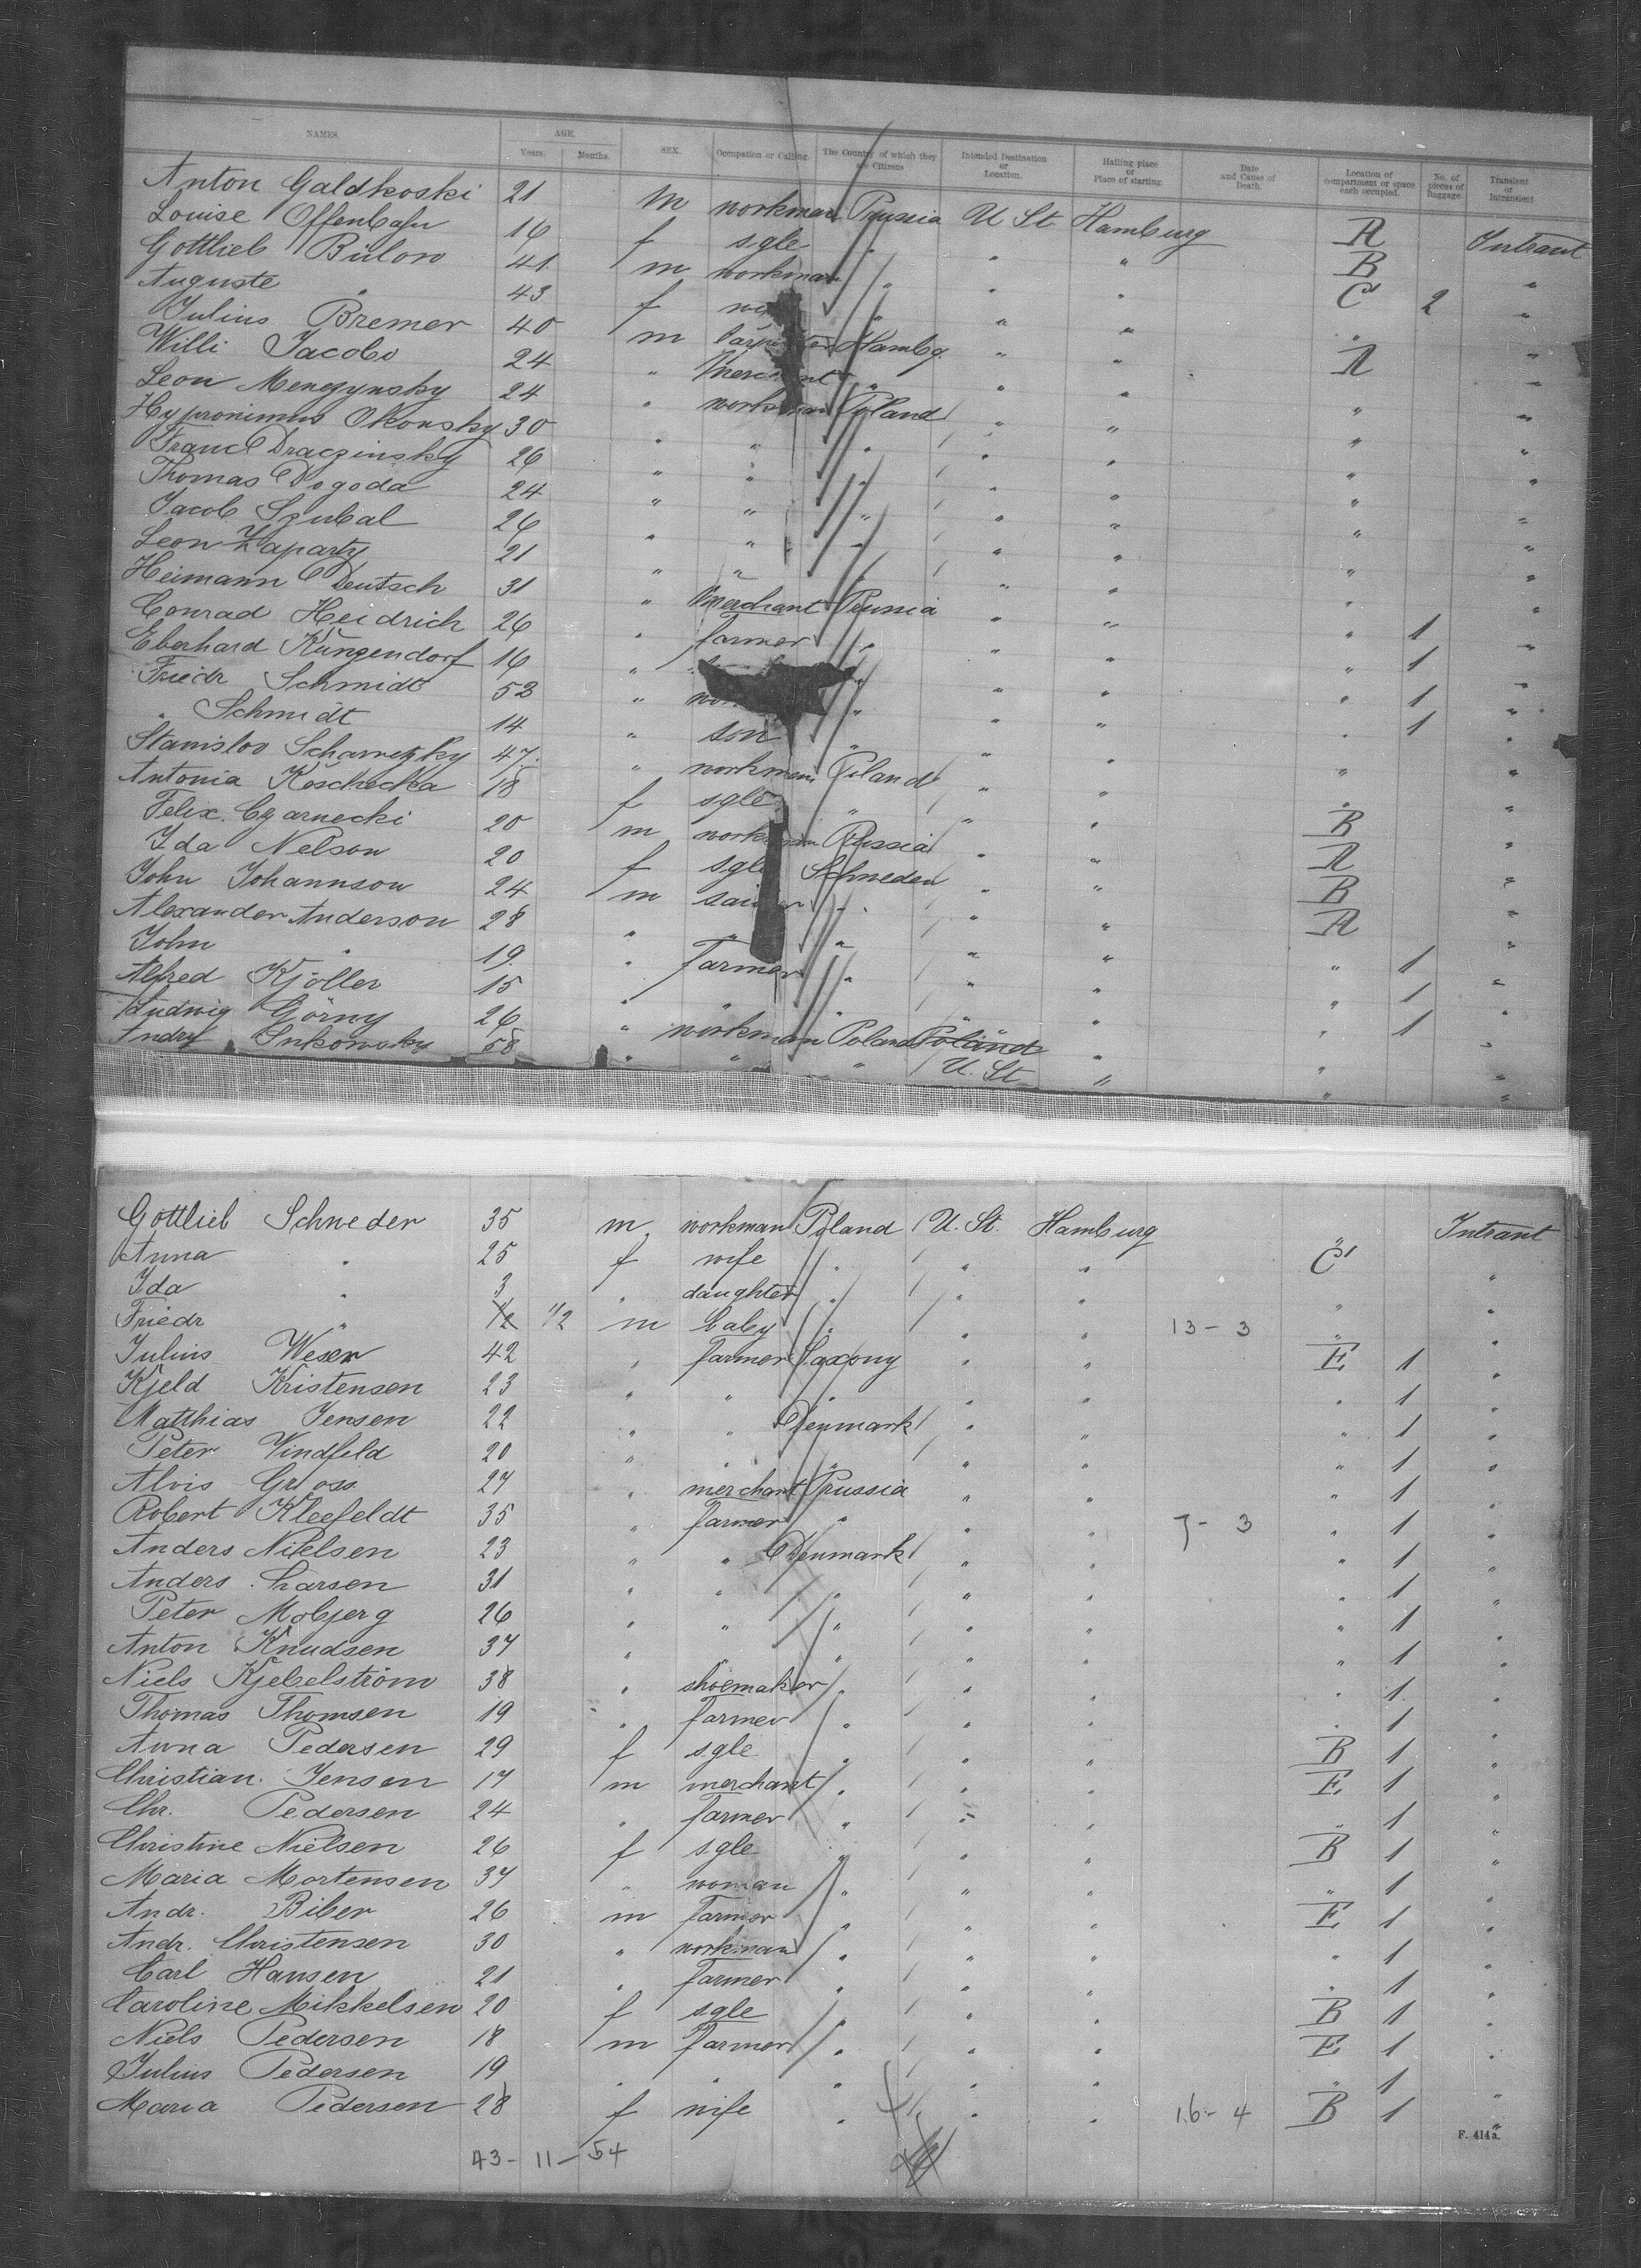 NAMES. AGE. Years. Months. SEX. Occupation or Calling. The Country of which they are Citizens Intended Destination or Location. Hailing place or Place of starting. Date and Cause of Death. Location of compartment or space each occupied. No. of pieces of Baggage. Transient or Intransient.
Anton Galdkoski 21 m workman Prussia U St. Hamburg A Intrant
Louise Offenbahn 16 f sgle " " " B "
Gottlieb Bülow 41 m workman " " " C 2 "
Auguste " 43 f " " " " "
Julius Bremer 40 m Hambg. " " A "
Willi Jacobo 24 " " " " " "
Leon Menczynsky 24 " workman Poland " " " "
Hypronimus Okonsky 30 " " " " " " "
Franc Draczinsky 26 " " " " " " "
Thomas Dogoda 24 " " " " " " "
Jacob Szubal 26 " " " " " " "
Leon Zaparty 21 " " " " " " "
Heimann Deutsch 31 " Merchant Prussia " " " 1 "
Conrad Heidrich 26 " farmer " " " " 1 "
Eberhard Kungendorf 16 " " " " " 1 "
Friedr Schmidt 52 " " " " " 1 "
" Schmidt 14 " son " " " " "
Stanislov Scharnetzky 47 " workman Poland " " " "
Antonia Koschecka 18 f sgle " " " B "
Felix Czarnecki 20 m workman Russia " " A "
Ida Nelson 20 f sgle Schweden " " B "
John Johannson 24 m " " " A "
Alexander Anderson 28 " " " " " " 1 "
John " 19 " Farmer " " " " 1 "
Alfred Kjöller 15 " " " " " " 1 "
Ludwig Görny 26 " workman Poland Poland " " "
Andry Inkowsky 58 " " " U. St. " " "
Gottlieb Schweder 35 m workman Poland U. St. Hamburg " Intrant
Anna " 25 f wife " " " C "
Ida " 3 " daughter " " " " "
Friedr " 1/2 1/2 m baby " " " 13-3 " "
Julius Weser 42 " farmer Saxony " " E 1 "
Kjeld Kristensen 23 " " " " " " 1 "
Matthias Jensen 22 " " Denmark " " " 1 "
Peter Vindfeld 20 " " " " " " 1 "
Alvis Gross 27 " merchant Prussia " " " 1 "
Robert Kleefeldt 35 " farmer " " " 7-3 " 1 "
Anders Nielsen 23 " " Denmark " " " 1 "
Anders Larsen 31 " " " " " " 1 "
Peter Mobjerg 26 " " " " " " 1 "
Anton Knudsen 37 " " " " " " 1 "
Niels Kjebelström 38 " shoemaker " " " " 1 "
Thomas Thomsen 19 " farmer " " " " 1 "
Anna Pedersen 29 f sgle " " " B 1 "
Christian Jensen 17 m merchant " " " E 1 "
Chr. Pedersen 24 " farmer " " " " 1 "
Christine Nielsen 26 f sgle " " " B 1 "
Maria Mortensen 37 " woman " " " " 1 "
Andr. Biber 26 m farmer " " " E 1 "
Andr. Christensen 30 " workman " " " " 1 "
Carl Hansen 21 " farmer " " " " 1 "
Caroline Mikkelsen 20 f sgle " " " B 1 "
Niels Pedersen 18 m farmer " " " E 1 "
Julius Pedersen 19 " " " " " " 1 "
Maria Pedersen 28 f wife " " " 16-4 B 1 "
F. 414a.
43-11-54